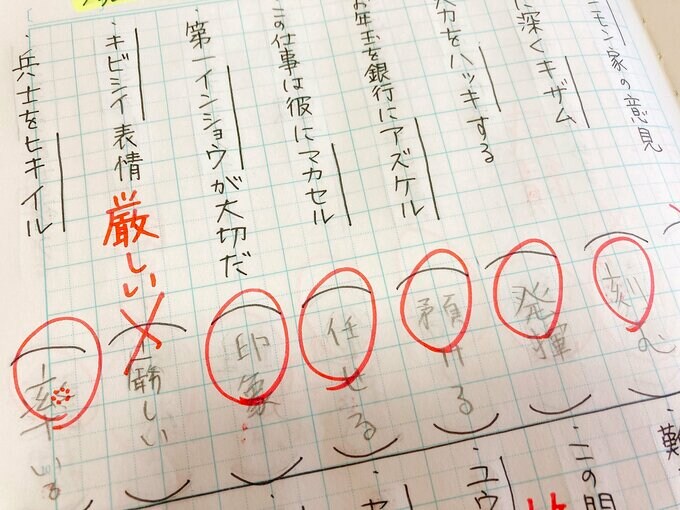 モン家の意見
に深くキザム
刻む
力をハッキする
発揮
お年玉を銀行にアズケル
預ける
この仕事は彼にマカセル
任せる
・第一インショウが大切だ
印象
・キビシイ表情
厳しい
しい
・兵士をヒキイル
率いる
難
・この問
・ユウ